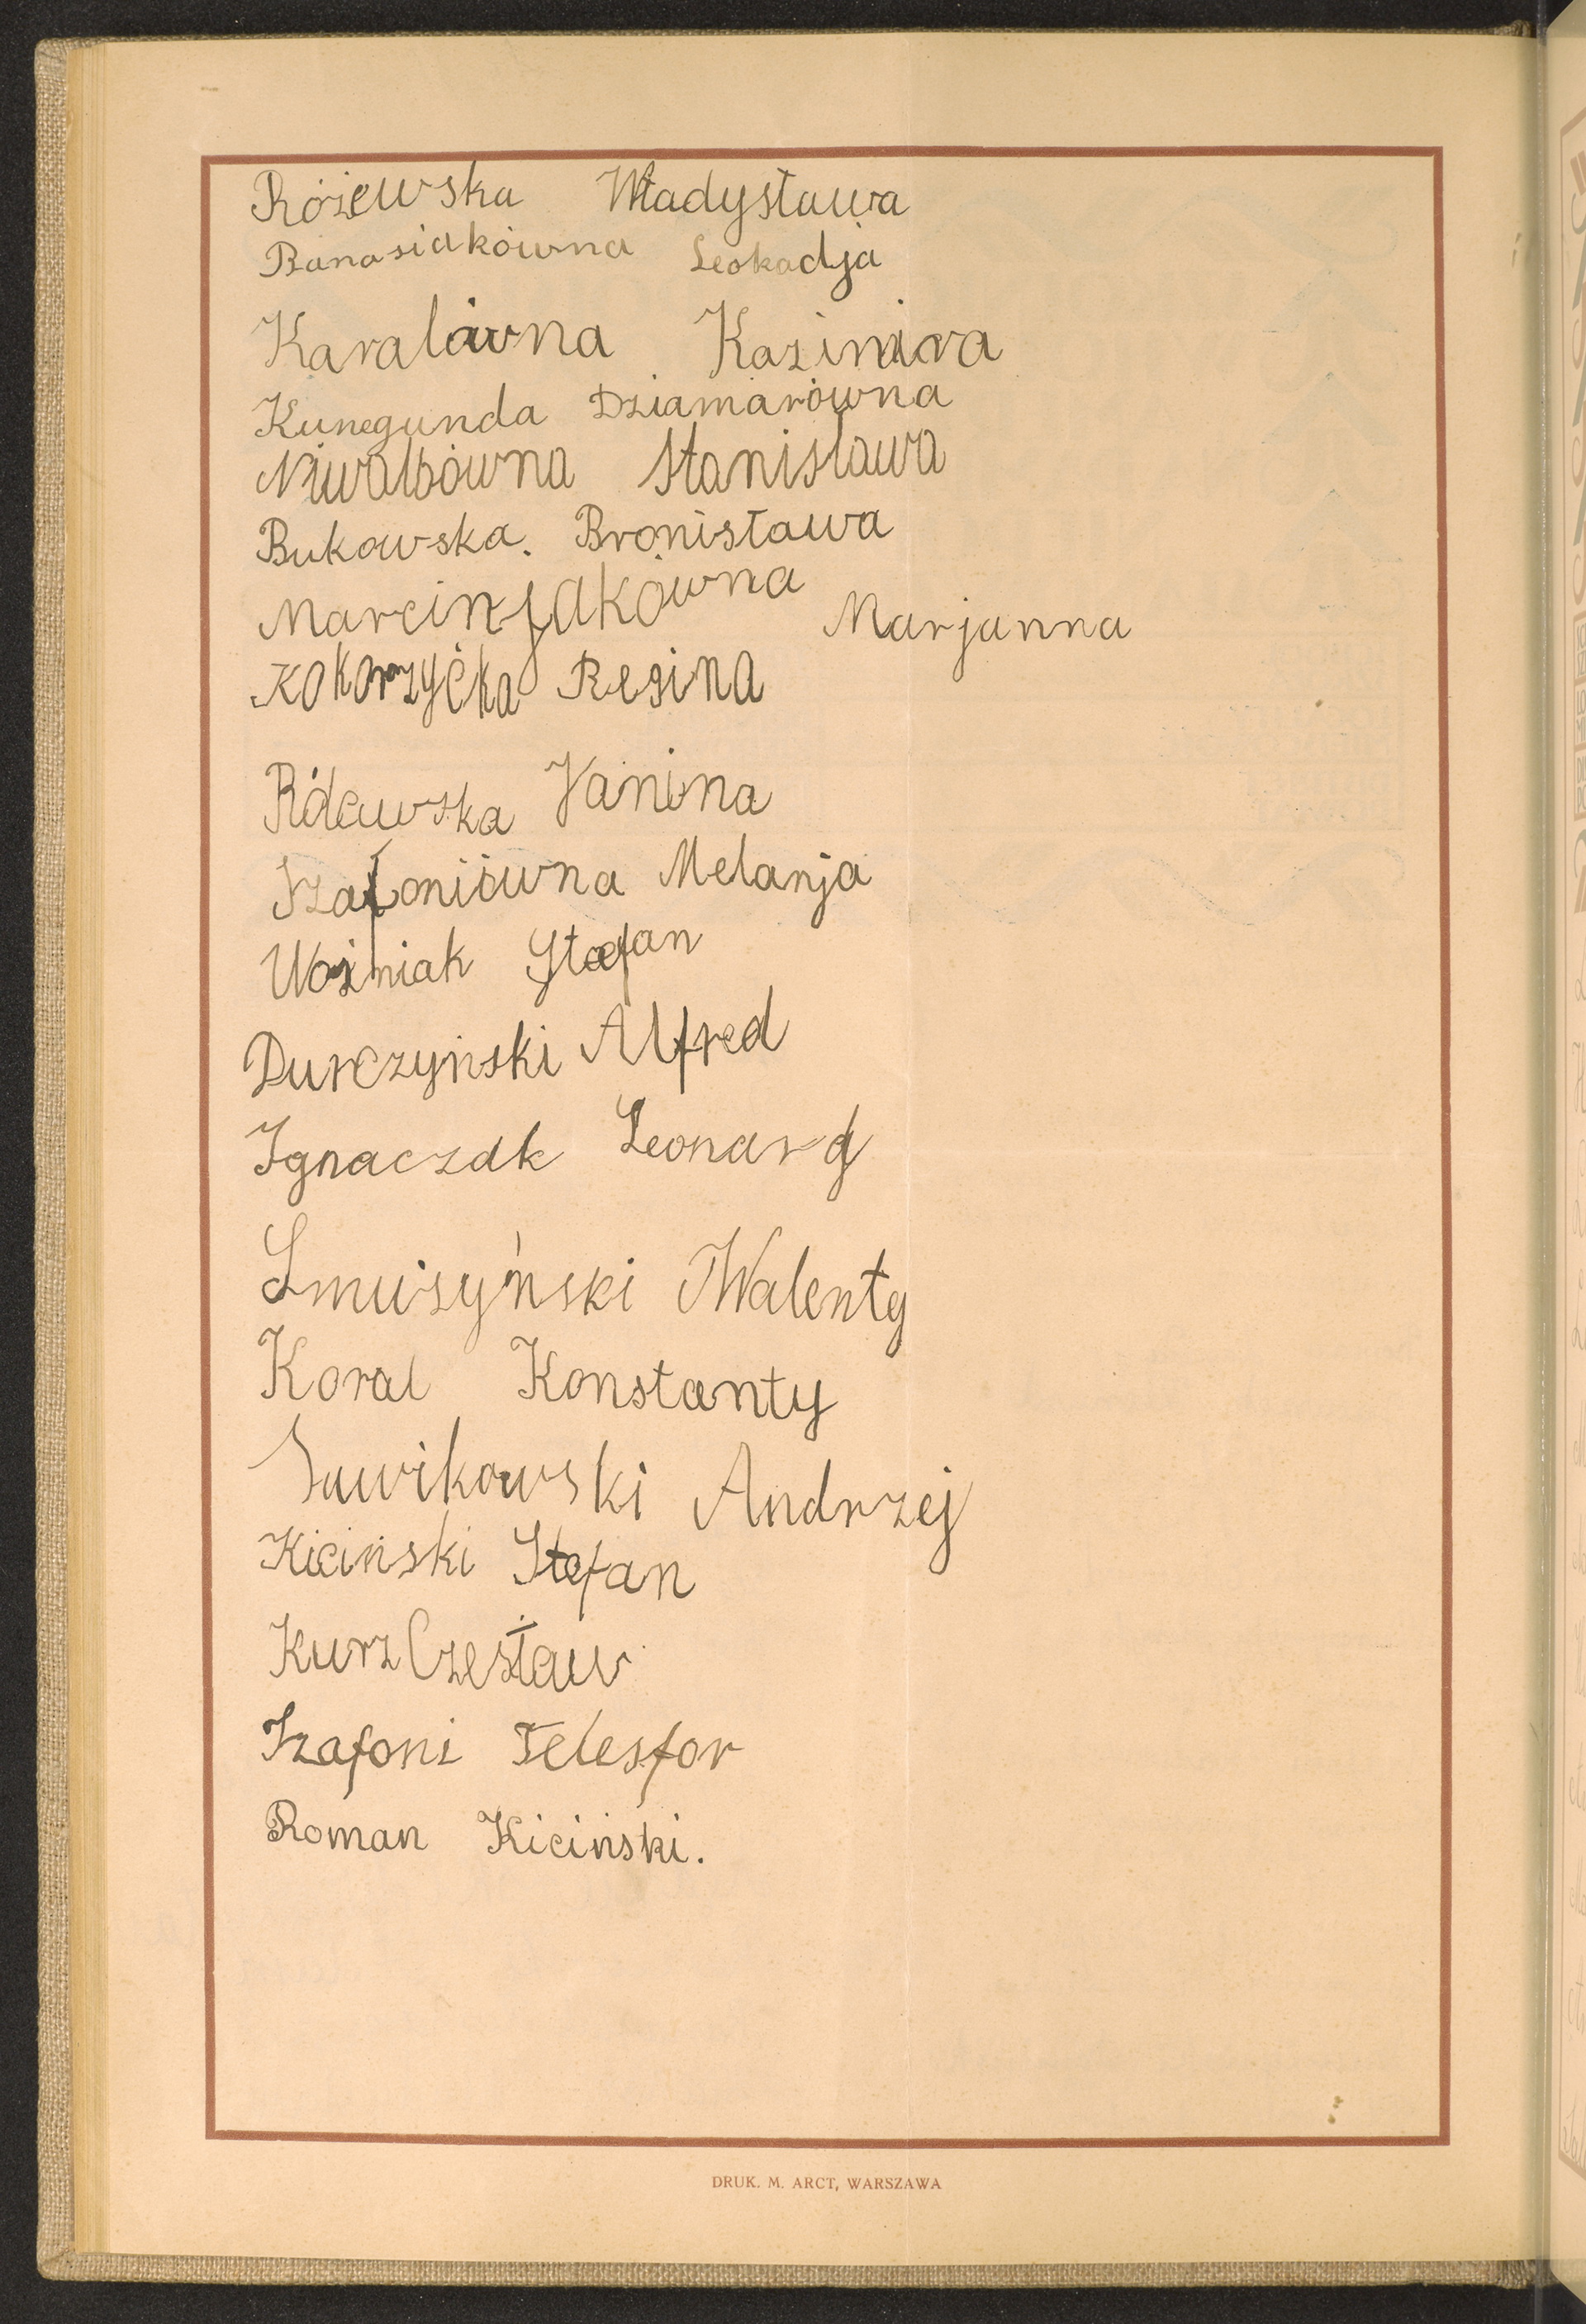 Różewska Władysława
Banasiakówna Leokadja
Karalówna Kazimira
Kunegunda Dziamarówna
Niwalbówna Stanisława
Bukowska. Bronisława
Marcinjakówna Marjanna
Kokorzycka Regina
Rólewska Janina
Szafoniówna Melanja
Woźniak Stefan
Durczyński Alfred
Ignaczak Leonard
Smuszyński Walenty
Koral Konstanty
Suwikowski Andrzej
Kiciński Stefan
Kurz Czesław
Szafoni Telesfor
Roman Kiciński.
DRUK. M. ARCT, WARSZAWA